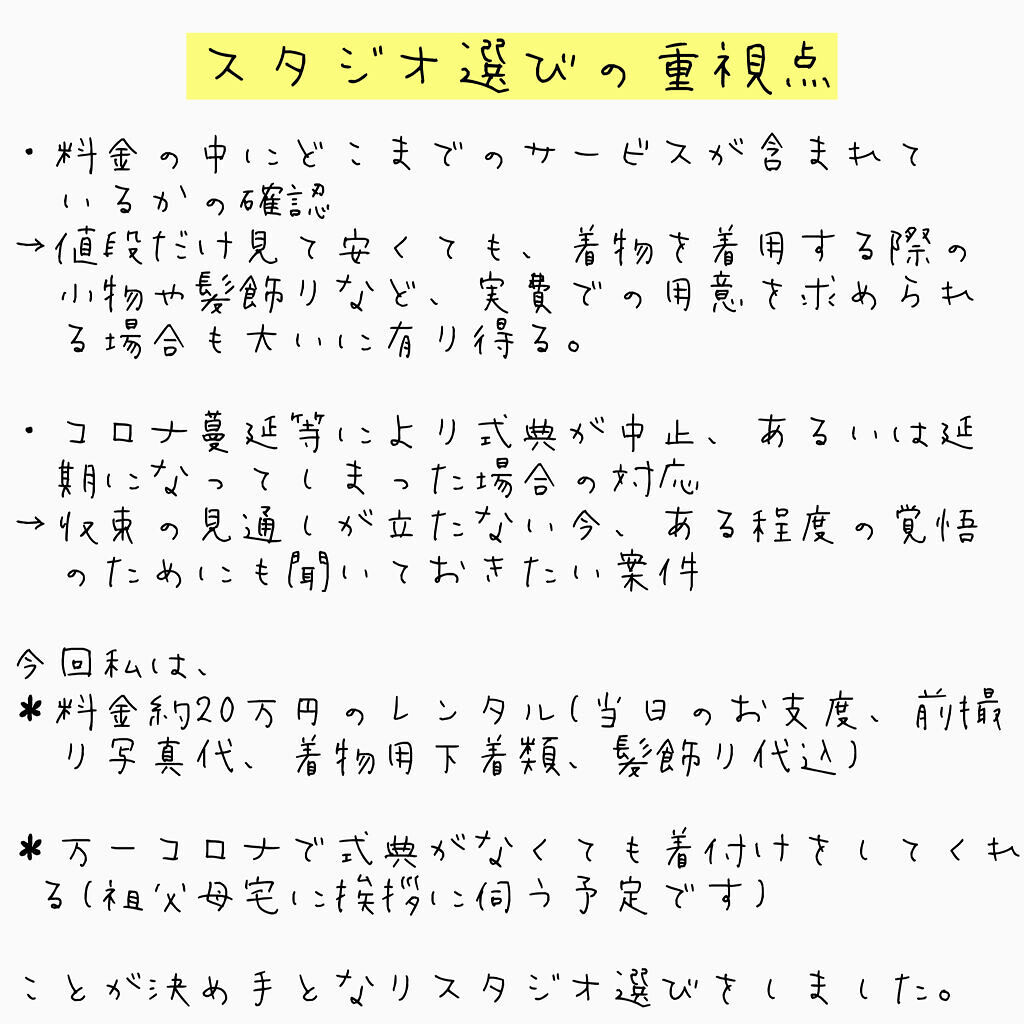 スタジオ選びの重視点
・料金の中にどこまでのサービスが含まれて
いるかの確認
→値段だけ見て安くても、着物を着用する際の
小物や髪飾りなど、実費での用意を求められ
る場合も大いに有り得る。
・コロナ蔓延等により式典が中止、あるいは延
期になってしまった場合の対応
→収束の見通しが立たない今、ある程度の覚悟
のためにも聞いておきたい案件
今回私は、
*料金約20万円のレンタル(当日のお支度、前撮
り写真代、着物用下着類、髪飾り代込)
*万一コロナで式典がなくても着付けをしてくれ
る(祖父母宅に挨拶に伺う予定です)
ことが決め手となりスタジオ選びをしました。